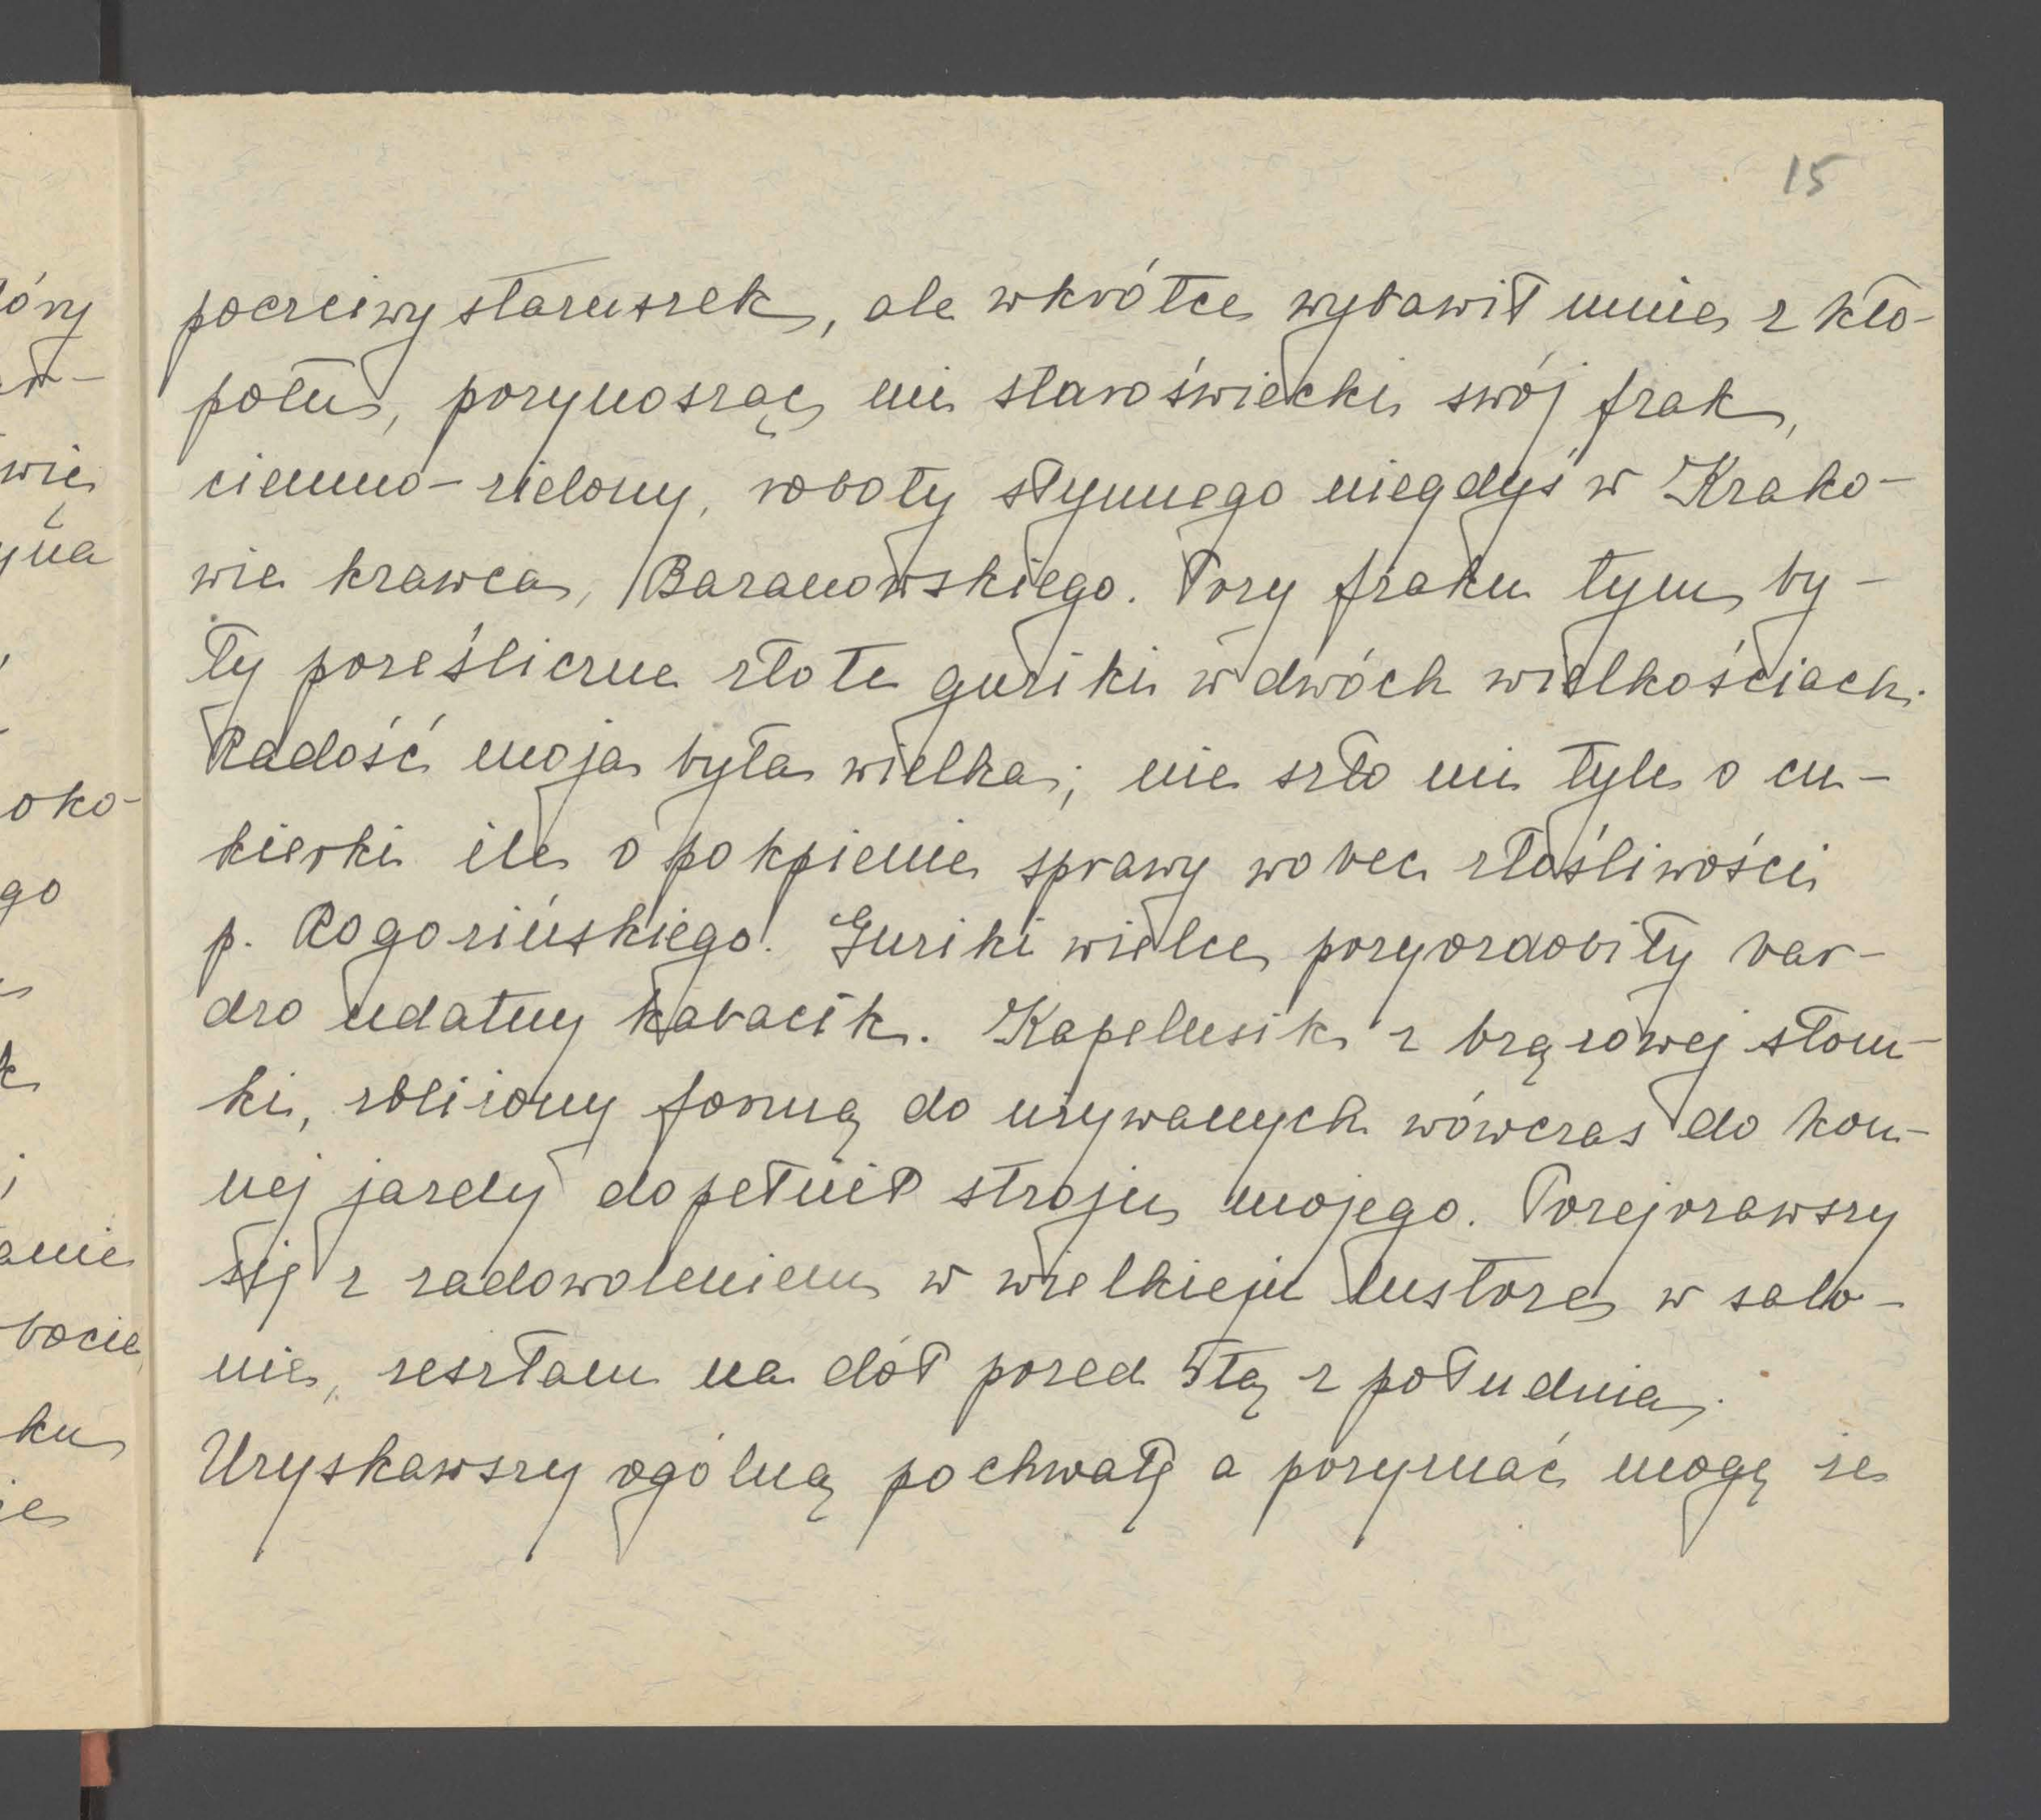 15
poczciwy staruszek, ale wkrótce wybawił mnie z kło-
potu, przynosząc mi staroświecki swój frak,
ciemno-zielony, roboty słynnego niegdyś w Krako-
wie krawca, Baranowskiego. Przy fraku tym by-
ły prześliczne złote guziki w dwóch wielkościach.
Radość moja była wielka; nie szło mi tyle o cu-
kierki ile o pokpienie sprawy wobec złośliwości
p. Rogozińskiego. Guziki wielce przyozdobiły bar-
dzo udatny kabacik. Kapelusik z brązowej słom-
ki, zbliżony formą do używanych wówczas do kon-
nej jazdy dopełnił stroju mojego. Przejrzawszy
się z zadowoleniem w wielkiem lustrze w salo-
nie, zeszłam na dół przed 5tą z południa.
Uzyskawszy ogólną pochwałę a przyznać mogę że
óry
wię
yna
oko-
go
k
anie
bocie
ku
ie